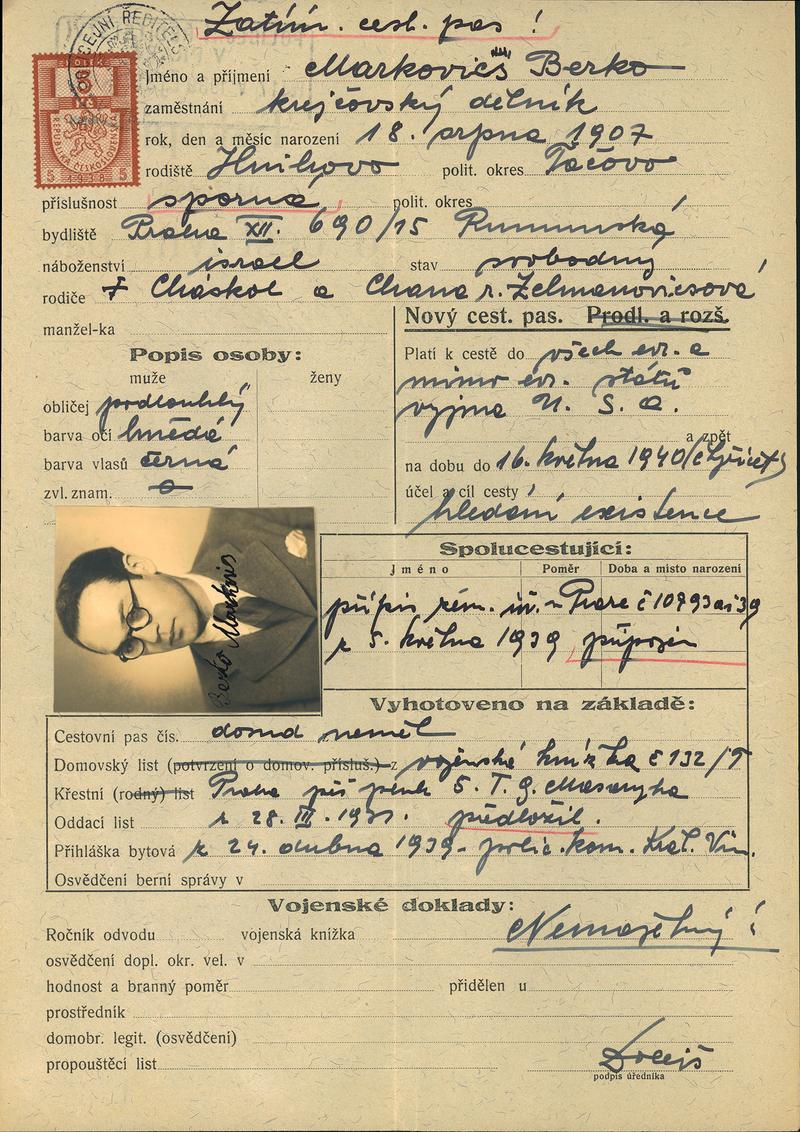 Zatím. cest. pas!
POLICEJNÍ ŘEDITELS
KOLEK
REPUBLIKA ČESKOSLOVENSKÁ
5 1938 5
Jméno a příjmení Markovičs Berko
zaměstnání krejčovský dělník
rok, den a měsíc narození 18. srpna 1907
rodiště Hnihovo polit. okres Táčovo
příslušnost sporná polit. okres
bydliště Praha XII. 690/15 Rumunská
náboženství israel stav svobodný
rodiče † Cháskel a Chana r. Zelmanovicsová
manžel-ka
Nový cest. pas. Prodl. a rozš.
Popis osoby:
muže ženy
obličej podlouhlý
barva očí hnědá
barva vlasů černá
zvl. znam. 0
Platí k cestě do všech evr. a
mimo evr. států
vyjma U. S. A.
a zpět
na dobu do 16. května 1940/čtyřicet/
účel a cíl cesty
hledání existence
Berko Markovis
Spolucestující:
Jméno Poměr Doba a místo narození
přípis zem. úř. v Praze č 10793 ai 39
z 5. května 1939 připojen
Vyhotoveno na základě:
Cestovní pas čís. dosud neměl
Domovský list (potvrzení o domov. přísluš.) z vojenská knížka č 132/T
Křestní (rodný) list Praha pěš pluk 5. T. G. Masaryka
Oddací list z 28. III. 1931. předložil.
Přihláška bytová z 24. dubna 1939 - polic. kom. Král. Vin.
Osvědčení berní správy v
Vojenské doklady:
Ročník odvodu vojenská knížka Nemajetný!
osvědčení dopl. okr. vel. v
hodnost a branný poměr přidělen u
prostředník
domobr. legit. (osvědčení)
propouštěcí list
podpis úředníka